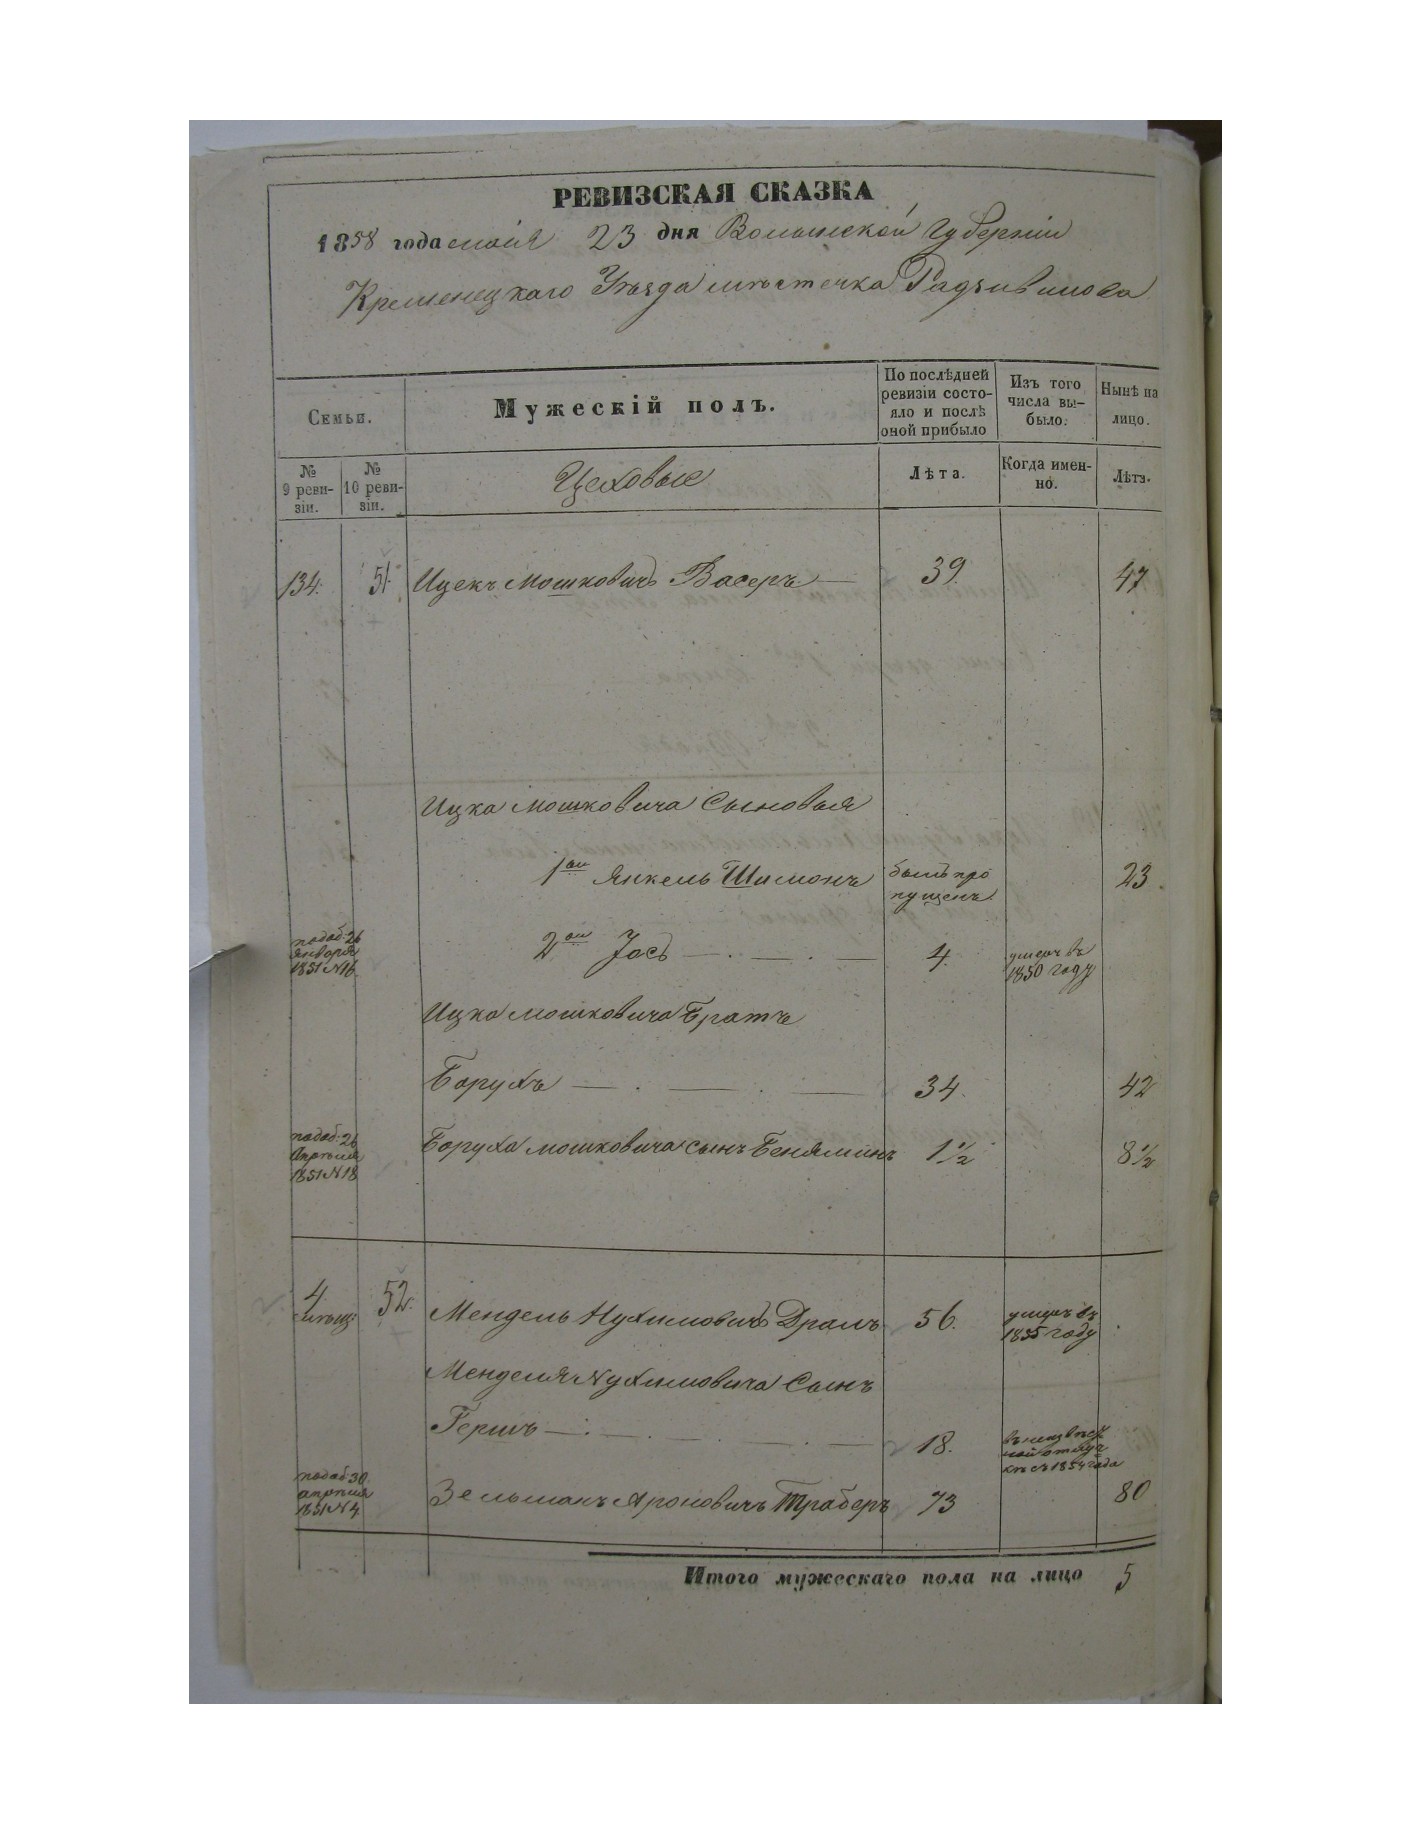 РЕВИЗСКАЯ СКАЗКА
1858 года маія 23 дня Волынской Губерніи
Кременецкаго Уѣзда мѣстечка Радзивилова
Семьи.
Мужескій полъ.
По послѣдней ревизіи состо-
яло и послѣ
оной прибыло
Изъ того
числа вы-
было.
Нынѣ на
лицо.
№
9 реви-
зіи.
№
10 реви-
зіи.
Цеховые
Лѣта.
Когда имен-
но.
Лѣта.
134. 51. Ицекъ Мошковичъ Васеръ 39. 47
Ицка Мошковича Сыновья
1ой Янкель Шимонъ былъ про
пущенъ. 23.
подоб: 26
Января
1851 №16
2ой Іось 4. умеръ въ
1850 году
Ицка Мошковича Братъ
Борухъ 34. 42
подоб: 26
Апрѣля
1851 №18
Боруха Мошковича сынъ Беняминъ 1 1/2 8 1/2
4
мѣщ:
52. Мендель Нухимовичъ Драль 56. умеръ въ
1855 году
Менделя Нухимовича Сынъ
Гершъ 18. въ неизвѣст
ной отлуч
кѣ съ 1854 года
подоб: 30
апрѣля
1851 №4
Зельманъ Ароновичъ Траберъ 73 80
Итого мужескаго пола на лицо 5